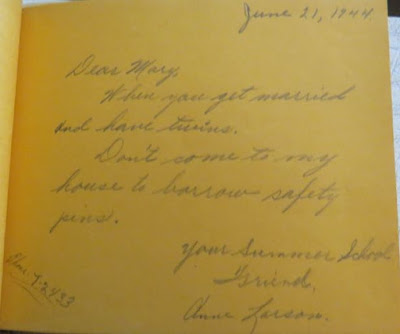 June 21, 1944
Dear Mary,
When you get married
and have twins.
Don't come to my
house to borrow safety
pins.
Your Summer School
Friend,
Anne Larson.
7-2433